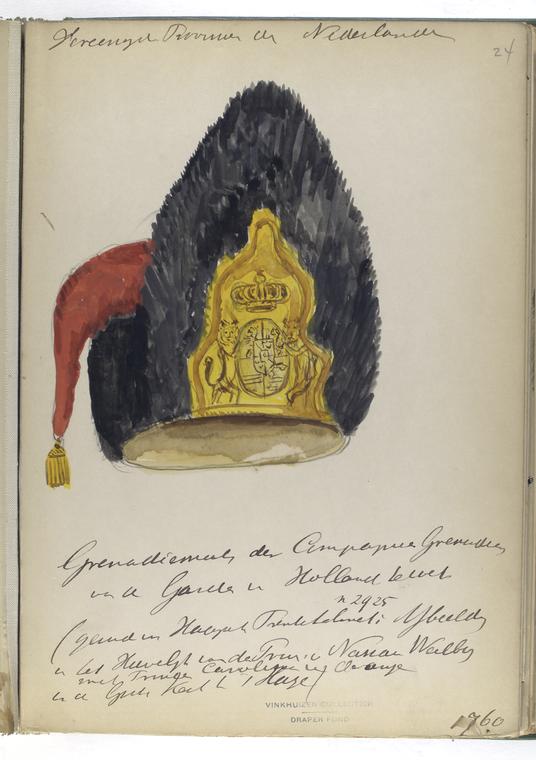 Vereenigde Provincien der Nederlanden
24
Grenadiermuts der Compagnie Grenadiers
van de Garde in Holland
n 2925
(gevolgd in Haagsch
in het Huwelijk van de Prins v. Nassau Weilburg
met Prinses Carolina v. Oranje
in de Groote Kerk te 's Hage)
VINKHUIZEN COLLECTION
DRAPER FUND
1760